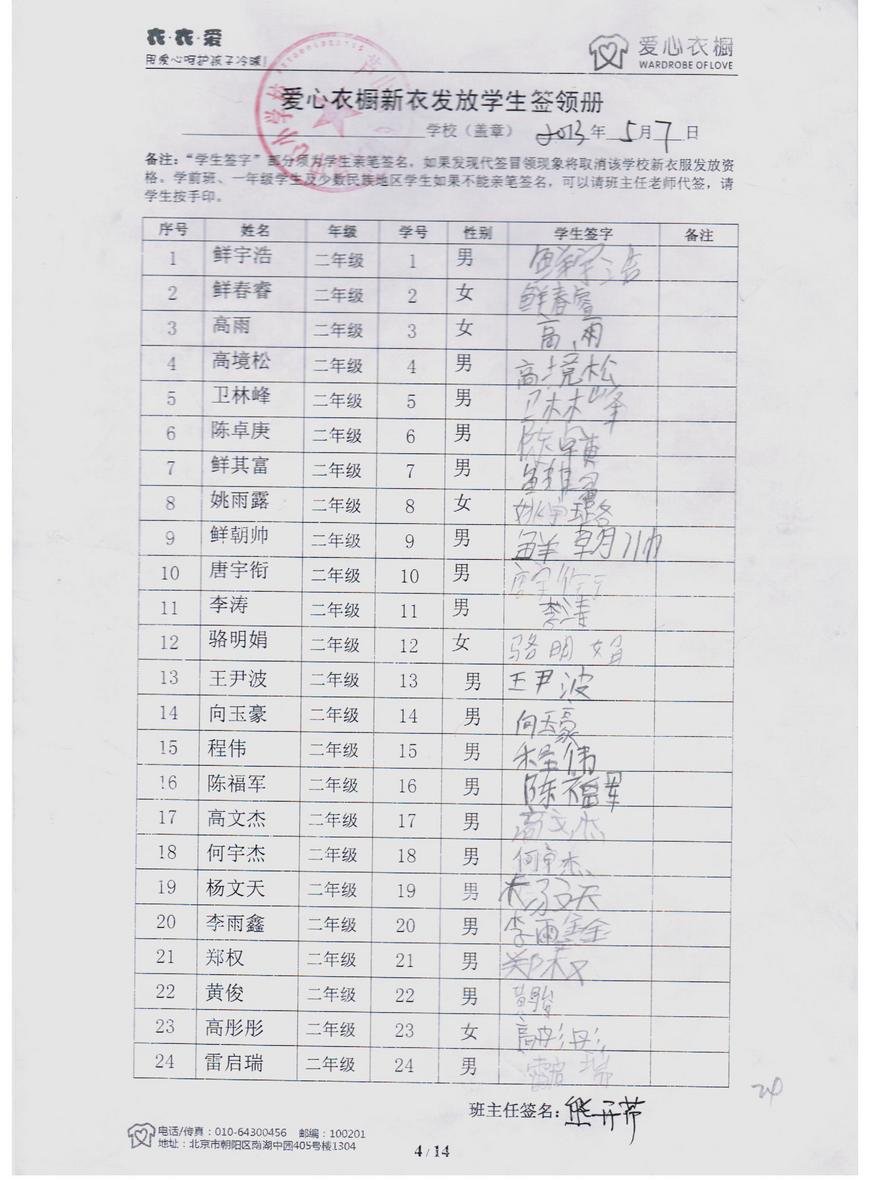 衣·衣·爱
用爱心呵护孩子冷暖!
爱心衣橱
WARDROBE OF LOVE
爱心衣橱新衣发放学生签领册
学校（盖章） 2013年 5月 7日
备注：“学生签字”部分须为学生亲笔签名，如果发现代签冒领现象将取消该学校新衣服发放资
格。学前班、一年级学生及少数民族地区学生如果不能亲笔签名，可以请班主任老师代签，请
学生按手印。
序号 姓名 年级 学号 性别 学生签字 备注
1 鲜宇浩 二年级 1 男 鲜宇浩
2 鲜春睿 二年级 2 女 鲜春睿
3 高雨 二年级 3 女 高雨
4 高境松 二年级 4 男 高境松
5 卫林峰 二年级 5 男 卫林峰
6 陈卓庚 二年级 6 男 陈卓庚
7 鲜其富 二年级 7 男 鲜其富
8 姚雨露 二年级 8 女 姚雨露
9 鲜朝帅 二年级 9 男 鲜朝帅
10 唐宇衔 二年级 10 男 唐宇衔
11 李涛 二年级 11 男 李涛
12 骆明娟 二年级 12 女 骆明娟
13 王尹波 二年级 13 男 王尹波
14 向玉豪 二年级 14 男 向玉豪
15 程伟 二年级 15 男 程伟
16 陈福军 二年级 16 男 陈福军
17 高文杰 二年级 17 男 高文杰
18 何宇杰 二年级 18 男 何宇杰
19 杨文天 二年级 19 男 杨文天
20 李雨鑫 二年级 20 男 李雨鑫
21 郑权 二年级 21 男 郑权
22 黄俊 二年级 22 男 黄俊
23 高彤彤 二年级 23 女 高彤彤
24 雷启瑞 二年级 24 男 雷启瑞
24
班主任签名：熊开芹
电话/传真：010-64300456 邮编：100201
地址：北京市朝阳区南湖中园405号楼1304
4 / 14